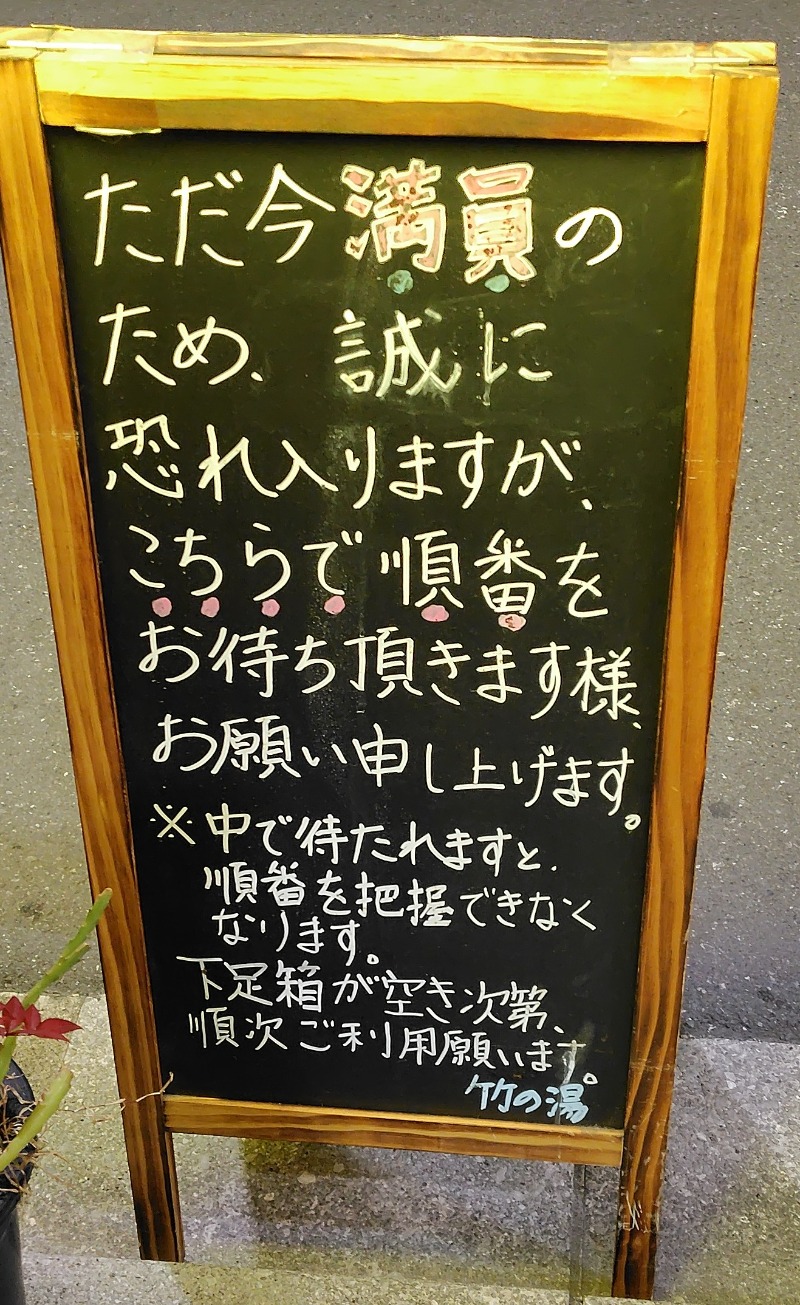 ただ今満員の
ため、誠に
恐れ入りますが、
こちらで順番を
お待ち頂きます様、
お願い申し上げます。
※中で待たれますと、
順番を把握できなく
なります。
下足箱が空き次第、
順次ご利用願います。
竹の湯